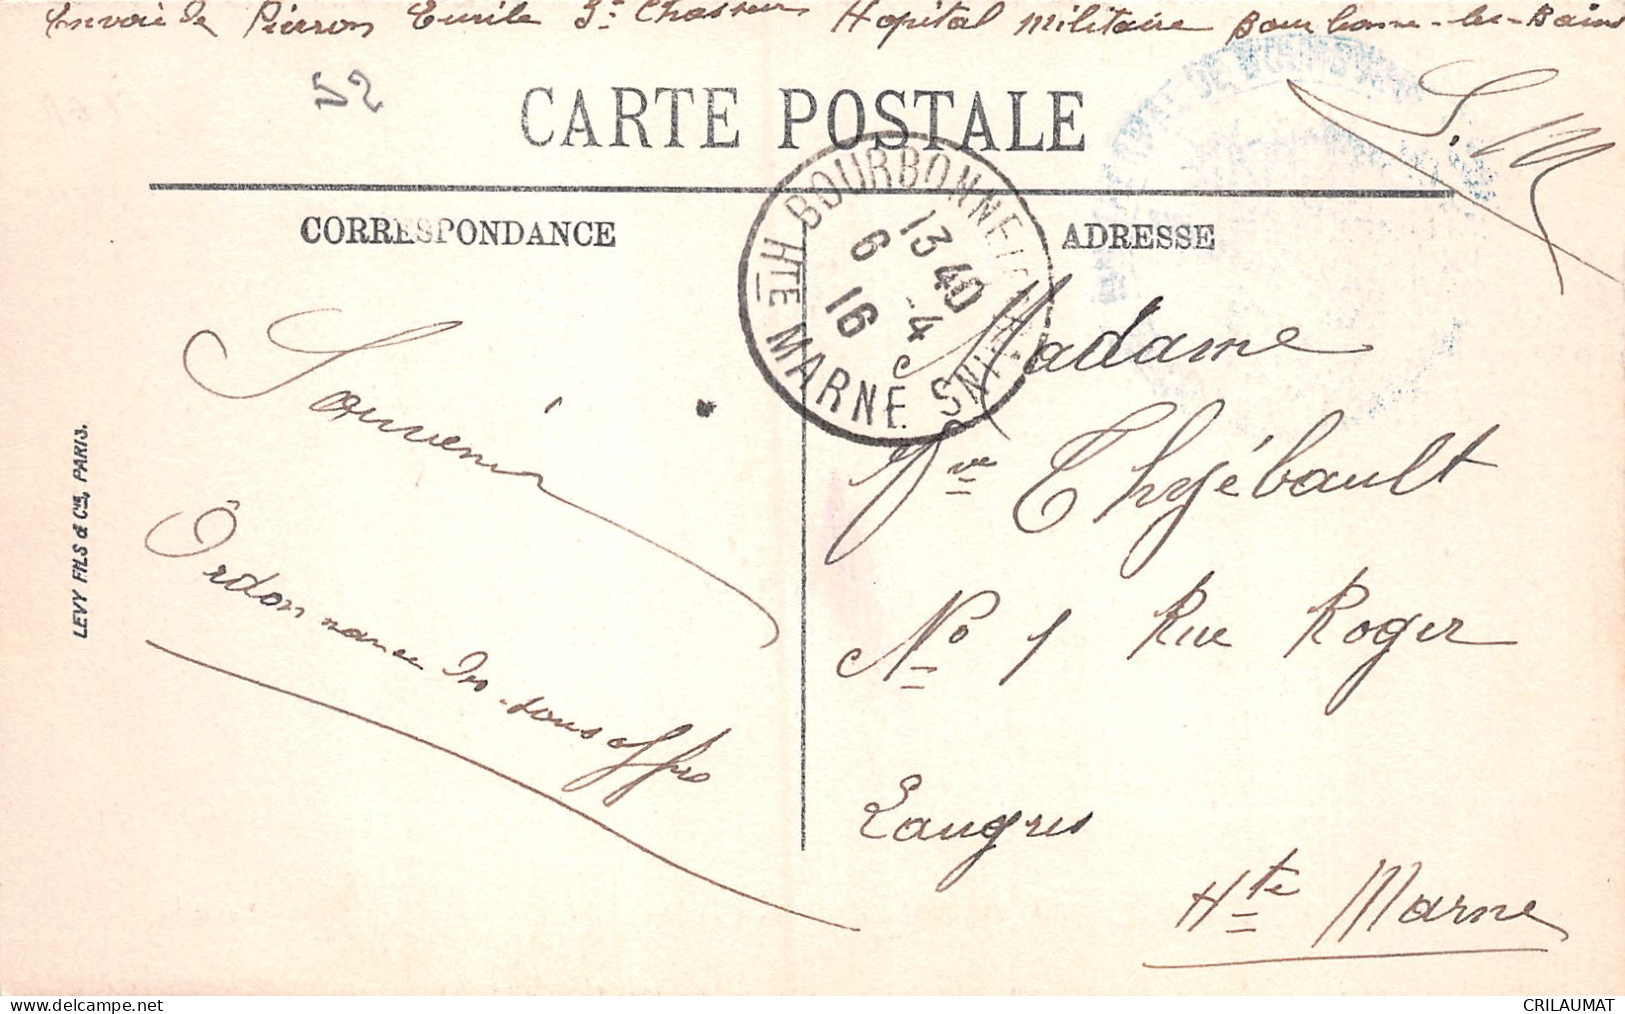 Envoi de Pierron Emile 5e Chasseurs Hopital Militaire Bourbonne-les-Bains
52
S. M
CARTE POSTALE
CORRESPONDANCE
ADRESSE
BOURBONNE-LES-BAINS
Hte MARNE
13 40
6 -4
16
Souvenir
Ordonnance des sous offrs
Madame
Vve Thyébault
No 1 Rue Roger
Langres
Hte Marne
LEVY FILS & Cie, PARIS.
CRILAUMAT